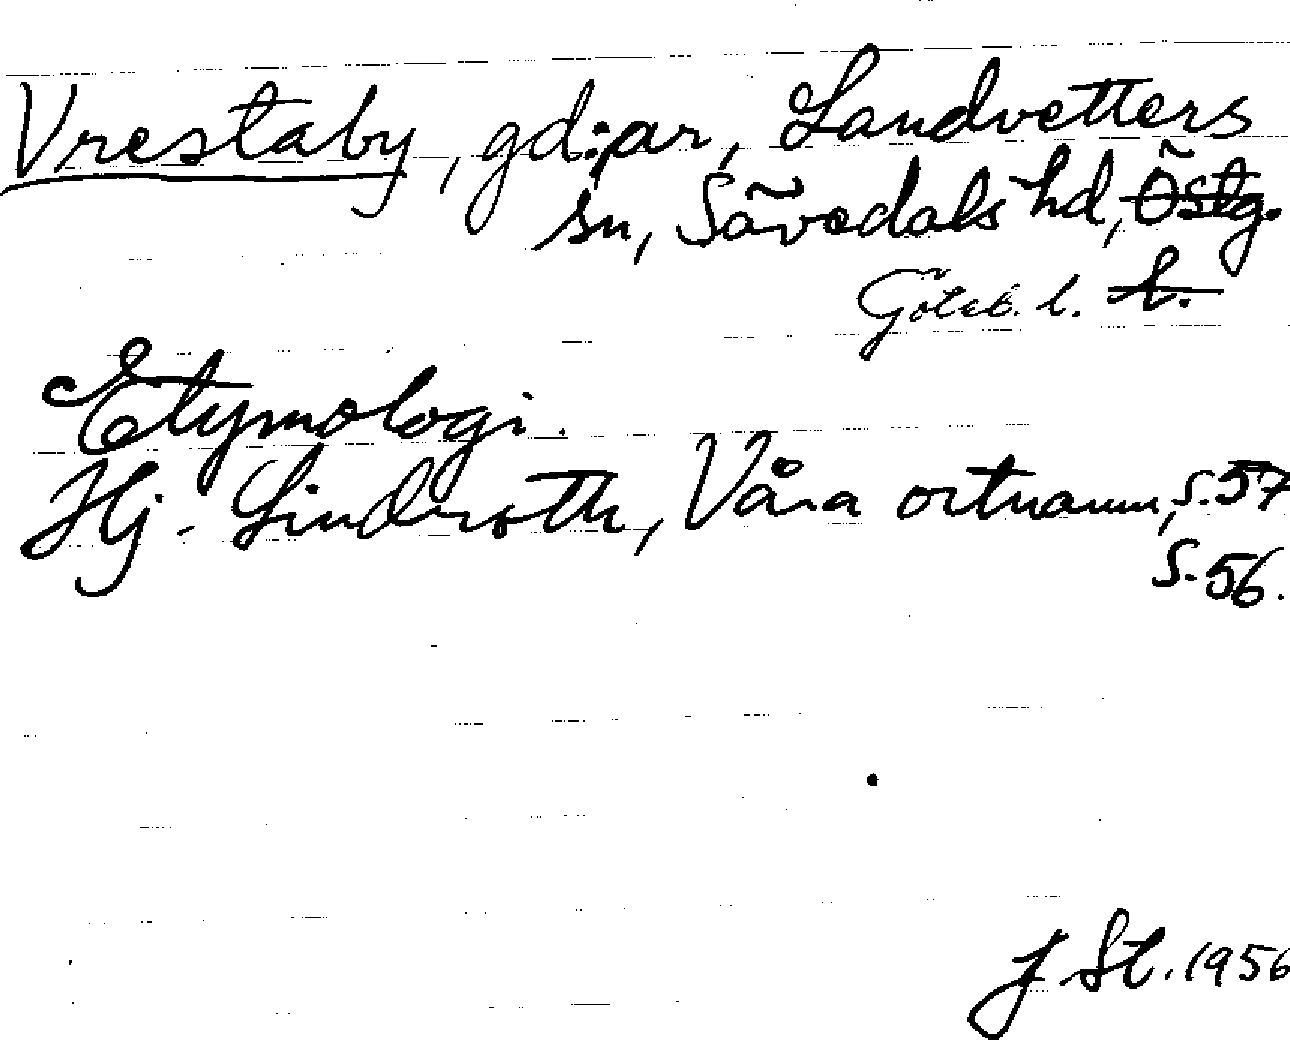 Vrestaby, gd:ar, Landvetters
sn, Sävedals hd, Östg.
Göteb. l. l.
Etymologi.
Hj. Lindroth, Våra ortnamn, s. 57
s. 56.
J St. 1956